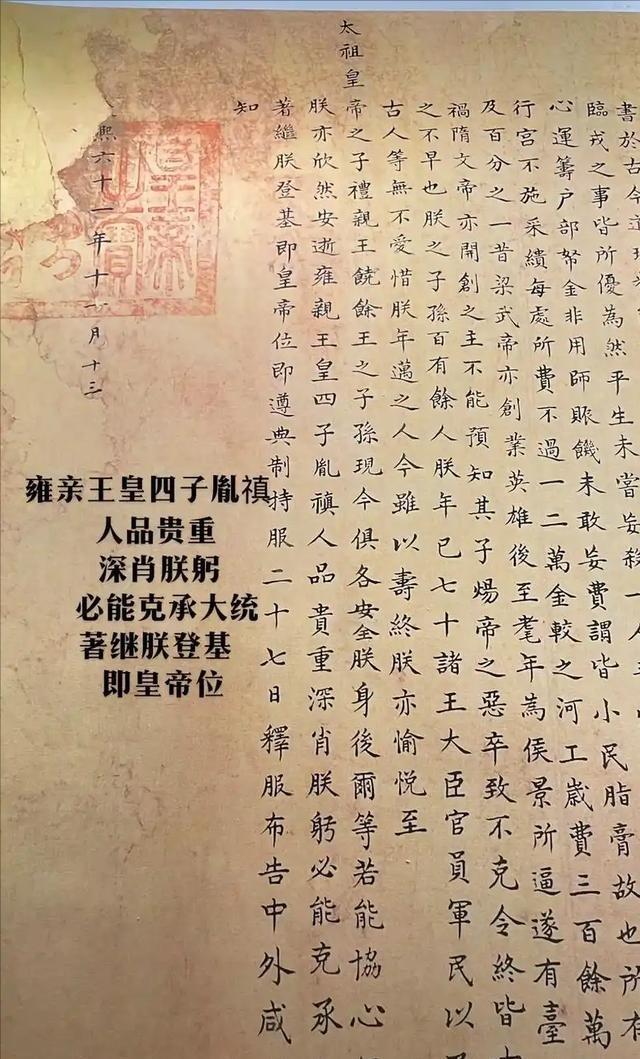 書於古今道理
臨戎之事皆所優為然平生未嘗妄殺一人
心運籌戶部帑金非用師賑饑未敢妄費謂皆小民脂膏故也所有
行宮不施采繢每處所費不過一二萬金較之河工歲費三百餘萬
及百分之一昔梁武帝亦創業英雄後至耄年為侯景所逼遂有臺
禍隋文帝亦開創之主不能預知其子煬帝之惡卒致不克令終皆
之不早也朕之子孫百有餘人朕年已七十諸王大臣官員軍民以
古人等無不愛惜朕年邁之人今雖以壽終朕亦愉悅至
太祖皇帝之子禮親王饒餘王之子孫現今俱各安全朕身後爾等若能協心
朕亦欣然安逝雍親王皇四子胤禛人品貴重深肖朕躬必能克承
著繼朕登基即皇帝位即遵典制持服二十七日釋服布告中外咸
知
熙六十一年十一月十三
雍亲王皇四子胤禛
人品贵重
深肖朕躬
必能克承大统
著继朕登基
即皇帝位